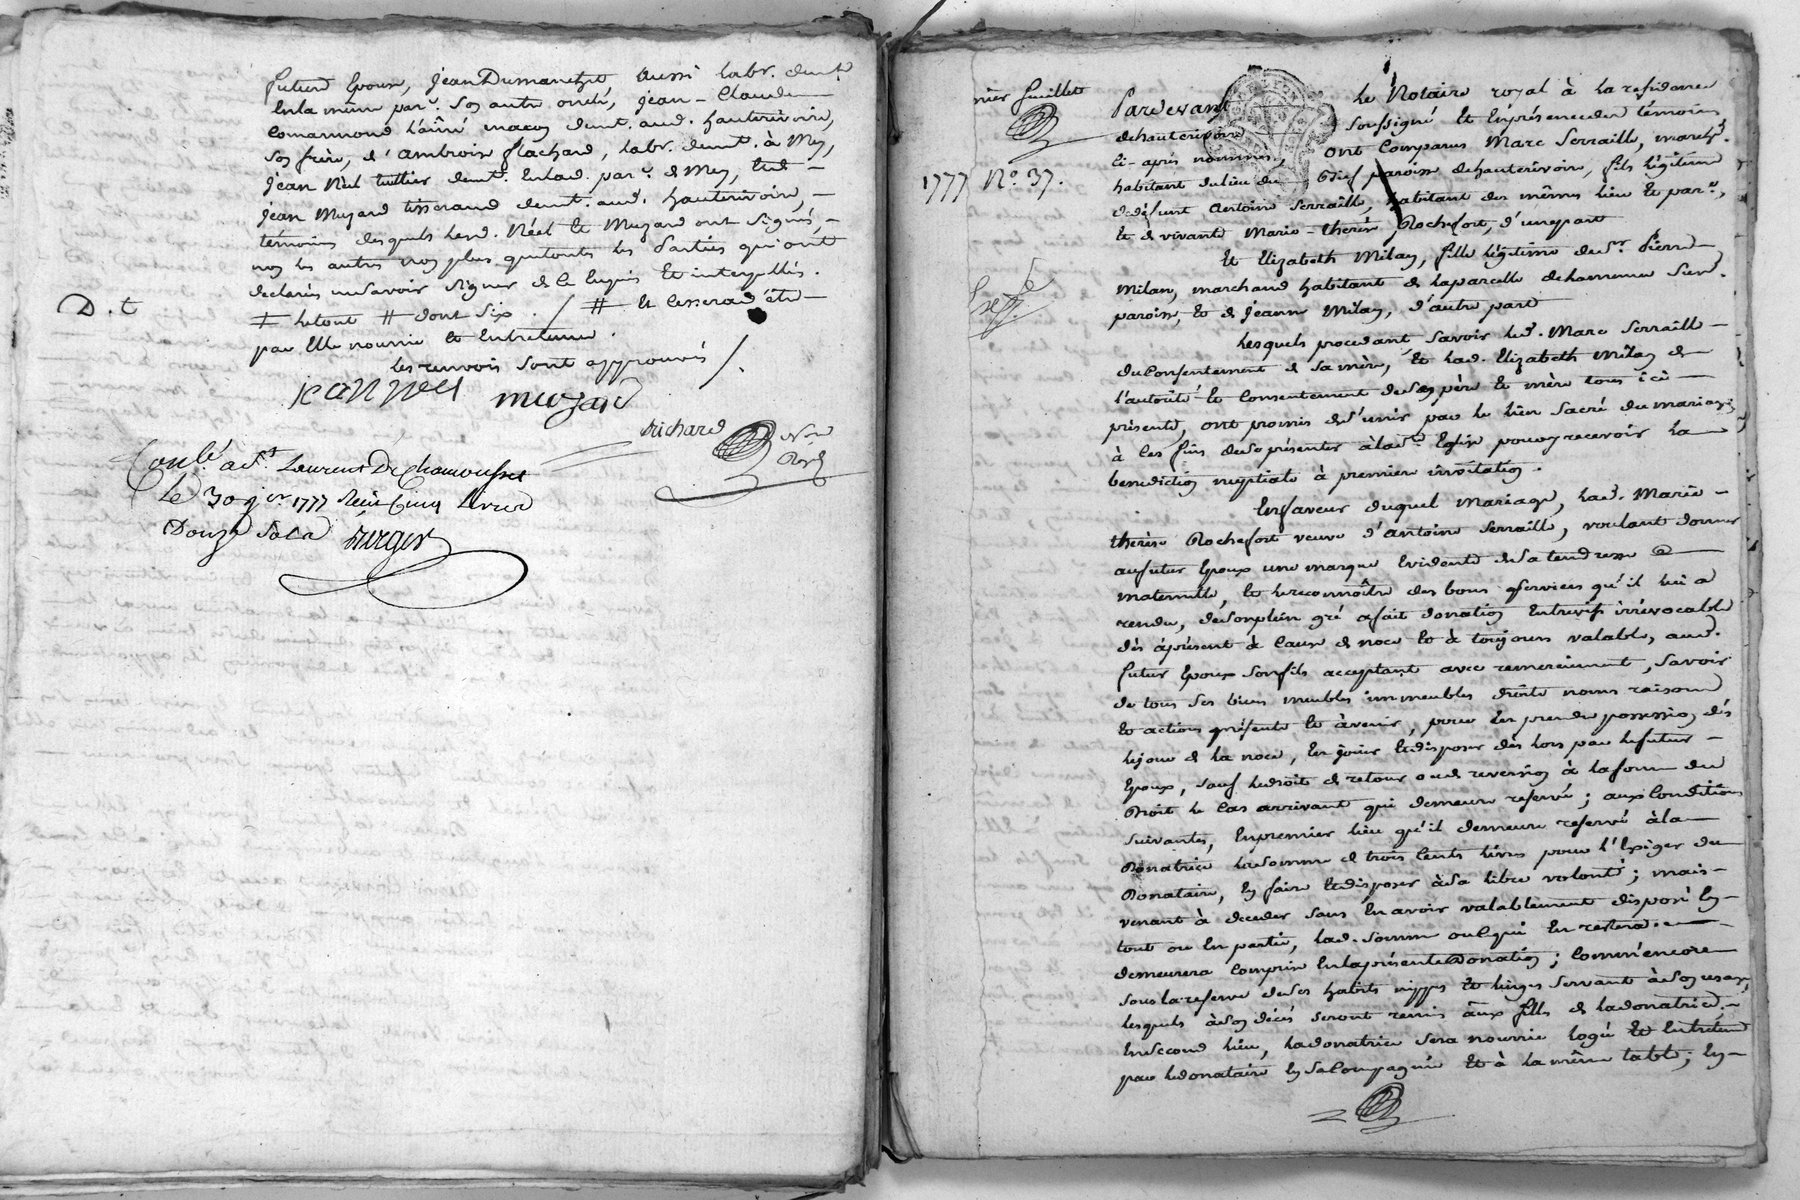 futur Epoux, Jean Dumanchet aussi labr. demt.
En la même parse. Son autre oncle, Jean-Claude
Commarmond l'aîné maçon demt. aud. hauterivoire,
Son frère, d'ambroise flachard, labr. demt. à Mey,
Jean Néel tuillier demt. En lad. parse. de Mey, Et de
Jean Muzard tisserand demt. aud. hauterivoire,
témoins desquels lesd. Néel Et Muzard ont Signés,
non les autres non plus que toutes les Parties qui ont
declarés ne Savoir Signer de ce Enquis Et interpellés.
D. t
‡ le tout # dont Six ./ # Et Cessera d'être
par Elle nourrie Et Entretenue.
les renvois Sont approuvés /.
jean neel muzard
Richard Nre
Royal
Conlé. a St. Laurent De Chamousset
Le 30 9bre 1777 Reçu Cinq Livres
Douze Sols Berger
mier feuillet
1777 No. 37.
Exp.d
Pardevant Le Notaire royal à la residence
de hauterivoire Soussigné Et En présence des témoins
Ci-après nommés, ont Comparus Marc Serraille, marchd.
habitant du lieu du Brief paroisse de hauterivoire, fils légitime
de défunt Antoine Serraille, habitant des mêmes lieu Et parse.,
Et de vivante Marie-thérèse Rochefort, d'une part
Et Elizabeth Milan, fille légitime de Sr. Pierre
Milan, marchand habitant de la parcelle de hameau Susd.
paroisse, Et de Jeanne Milan, d'autre part
Lesquels procedant Savoir led. Marc Serraille
du Consentement de Sa mère, Et lad. Elizabeth Milan de
l'autorité Et Consentement de Ses père Et mère tous ici
présents, ont promis de S'unir par le lien Sacré du mariage,
à Ces fins de Se présenter à lad. Eglise pour y recevoir la
benediction nuptiale à première invitation.
En faveur duquel Mariage, lad. Marie
thérèse Rochefort veuve d'Antoine Serraille, voulant donner
au futur Epoux une marque Evidente de Sa tendresse
maternelle, Et le reconnoître des bons Services qu'il lui a
rendu, de Son plein gré a fait donation Entrevifs irrévocable
dès àprésent à Cause de noce Et à toujours valable, aud.
futur Epoux Son fils acceptant avec remerciement, Savoir
de tous Ses biens meubles immeubles droits noms raisons
Et actions présents Et à venir, pour En prendre possession dès
le jour de la noce, En jouir Et disposer dès lors par le futur
Epoux, Sauf le droit de retour ou de reversion à la forme du
Droit le Cas arrivant qui demeure reservé; aux Conditions
Suivantes, En premier lieu qu'il demeure reservé à la
Donatrice la Somme de trois Cents livres pour l'Exiger du
Donataire, En faire Et disposer à Sa libre volonté; mais
venant à deceder Sans En avoir valablement disposé En
tout ou En partie, lad. Somme ou Ce qui En restera
demeurera Comprise En la présente Donation; Comm'encore
Sous la reserve de Ses habits nippes Et linges Servant à Son usage,
lesquels à Son décès Seront remis aux filles de la donatrice
En Second lieu, la donatrice Sera nourrie logée Et Entretenue
par le donataire En Sa Compagnie Et à la même table; En